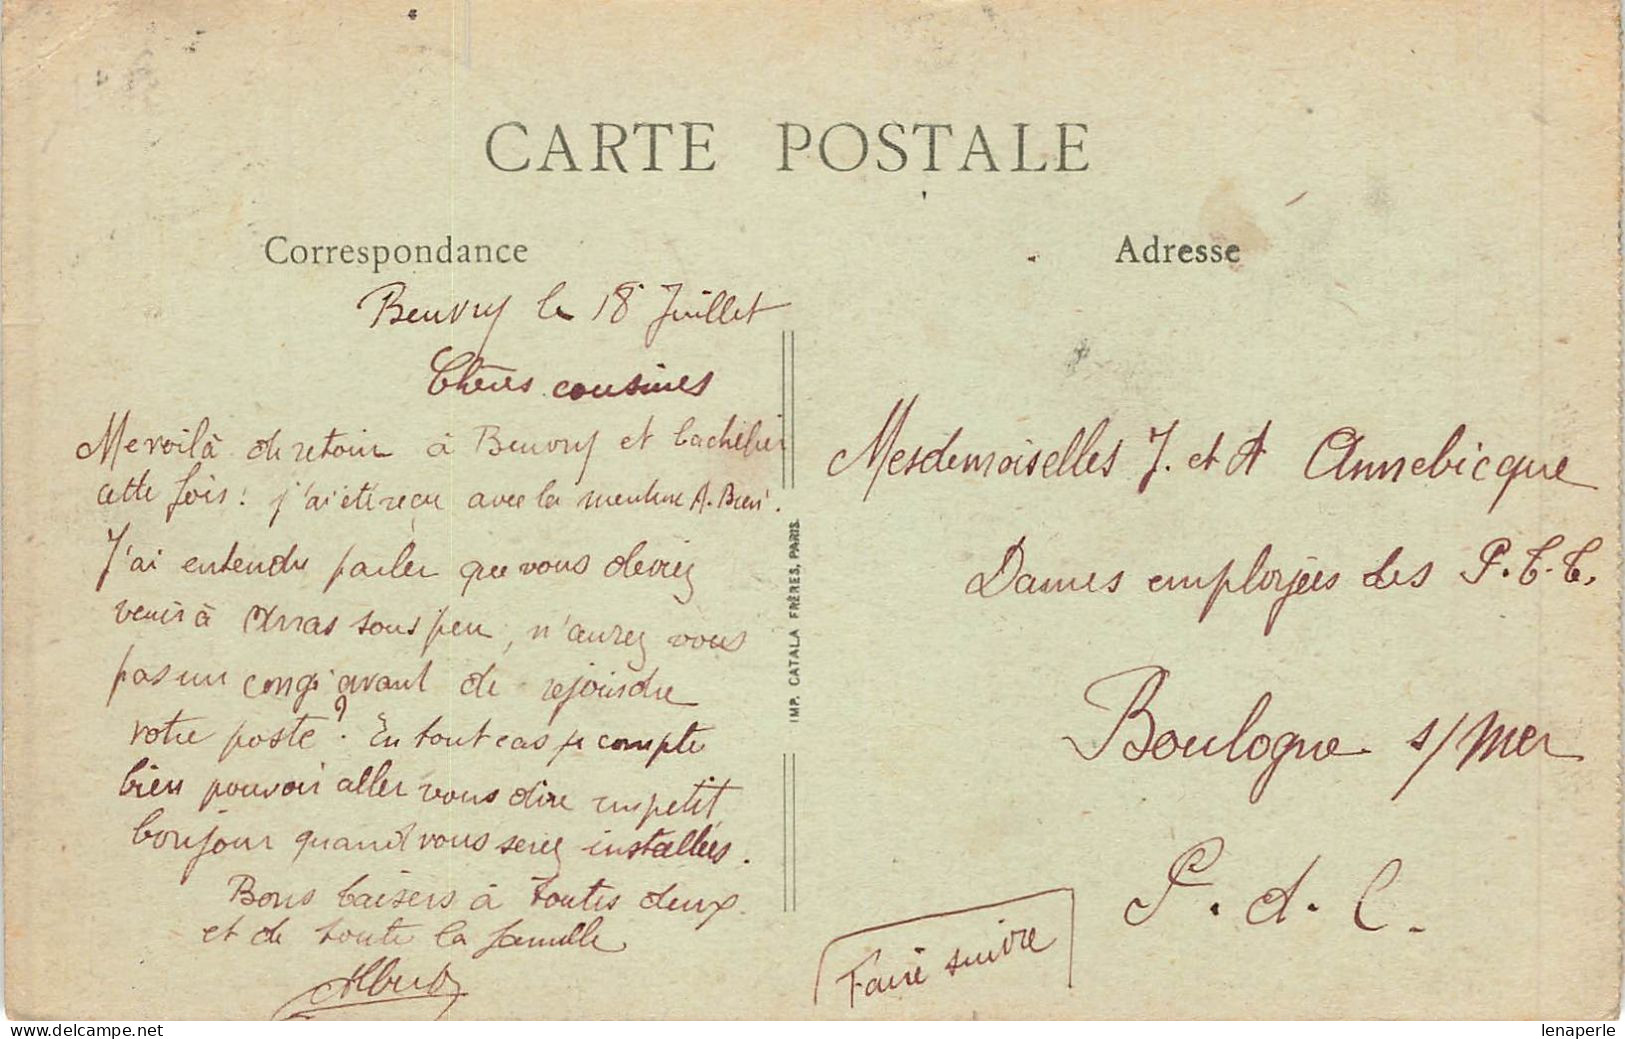 CARTE POSTALE
Correspondance
Beuvry le 18 Juillet
Chères cousines
Me voilà de retour à Beuvry et bachelier
cette fois ! j'ai été reçu avec la mention A. Bien.
J'ai entendu parler que vous deviez
venir à Arras sous peu, n'aurez vous
pas un congé avant de rejoindre
votre poste ? En tout cas je compte
bien pouvoir aller vous dire un petit
bonjour quand vous serez installées.
Bons baisers à toutes deux
et de toute la famille
Albert
IMP. CATALA FRÈRES, PARIS.
Adresse
Mesdemoiselles J. et A Annebicque
Dames employées des P.T.T.
Boulogne s/mer
P. d. C.
Faire suivre
lenaperle